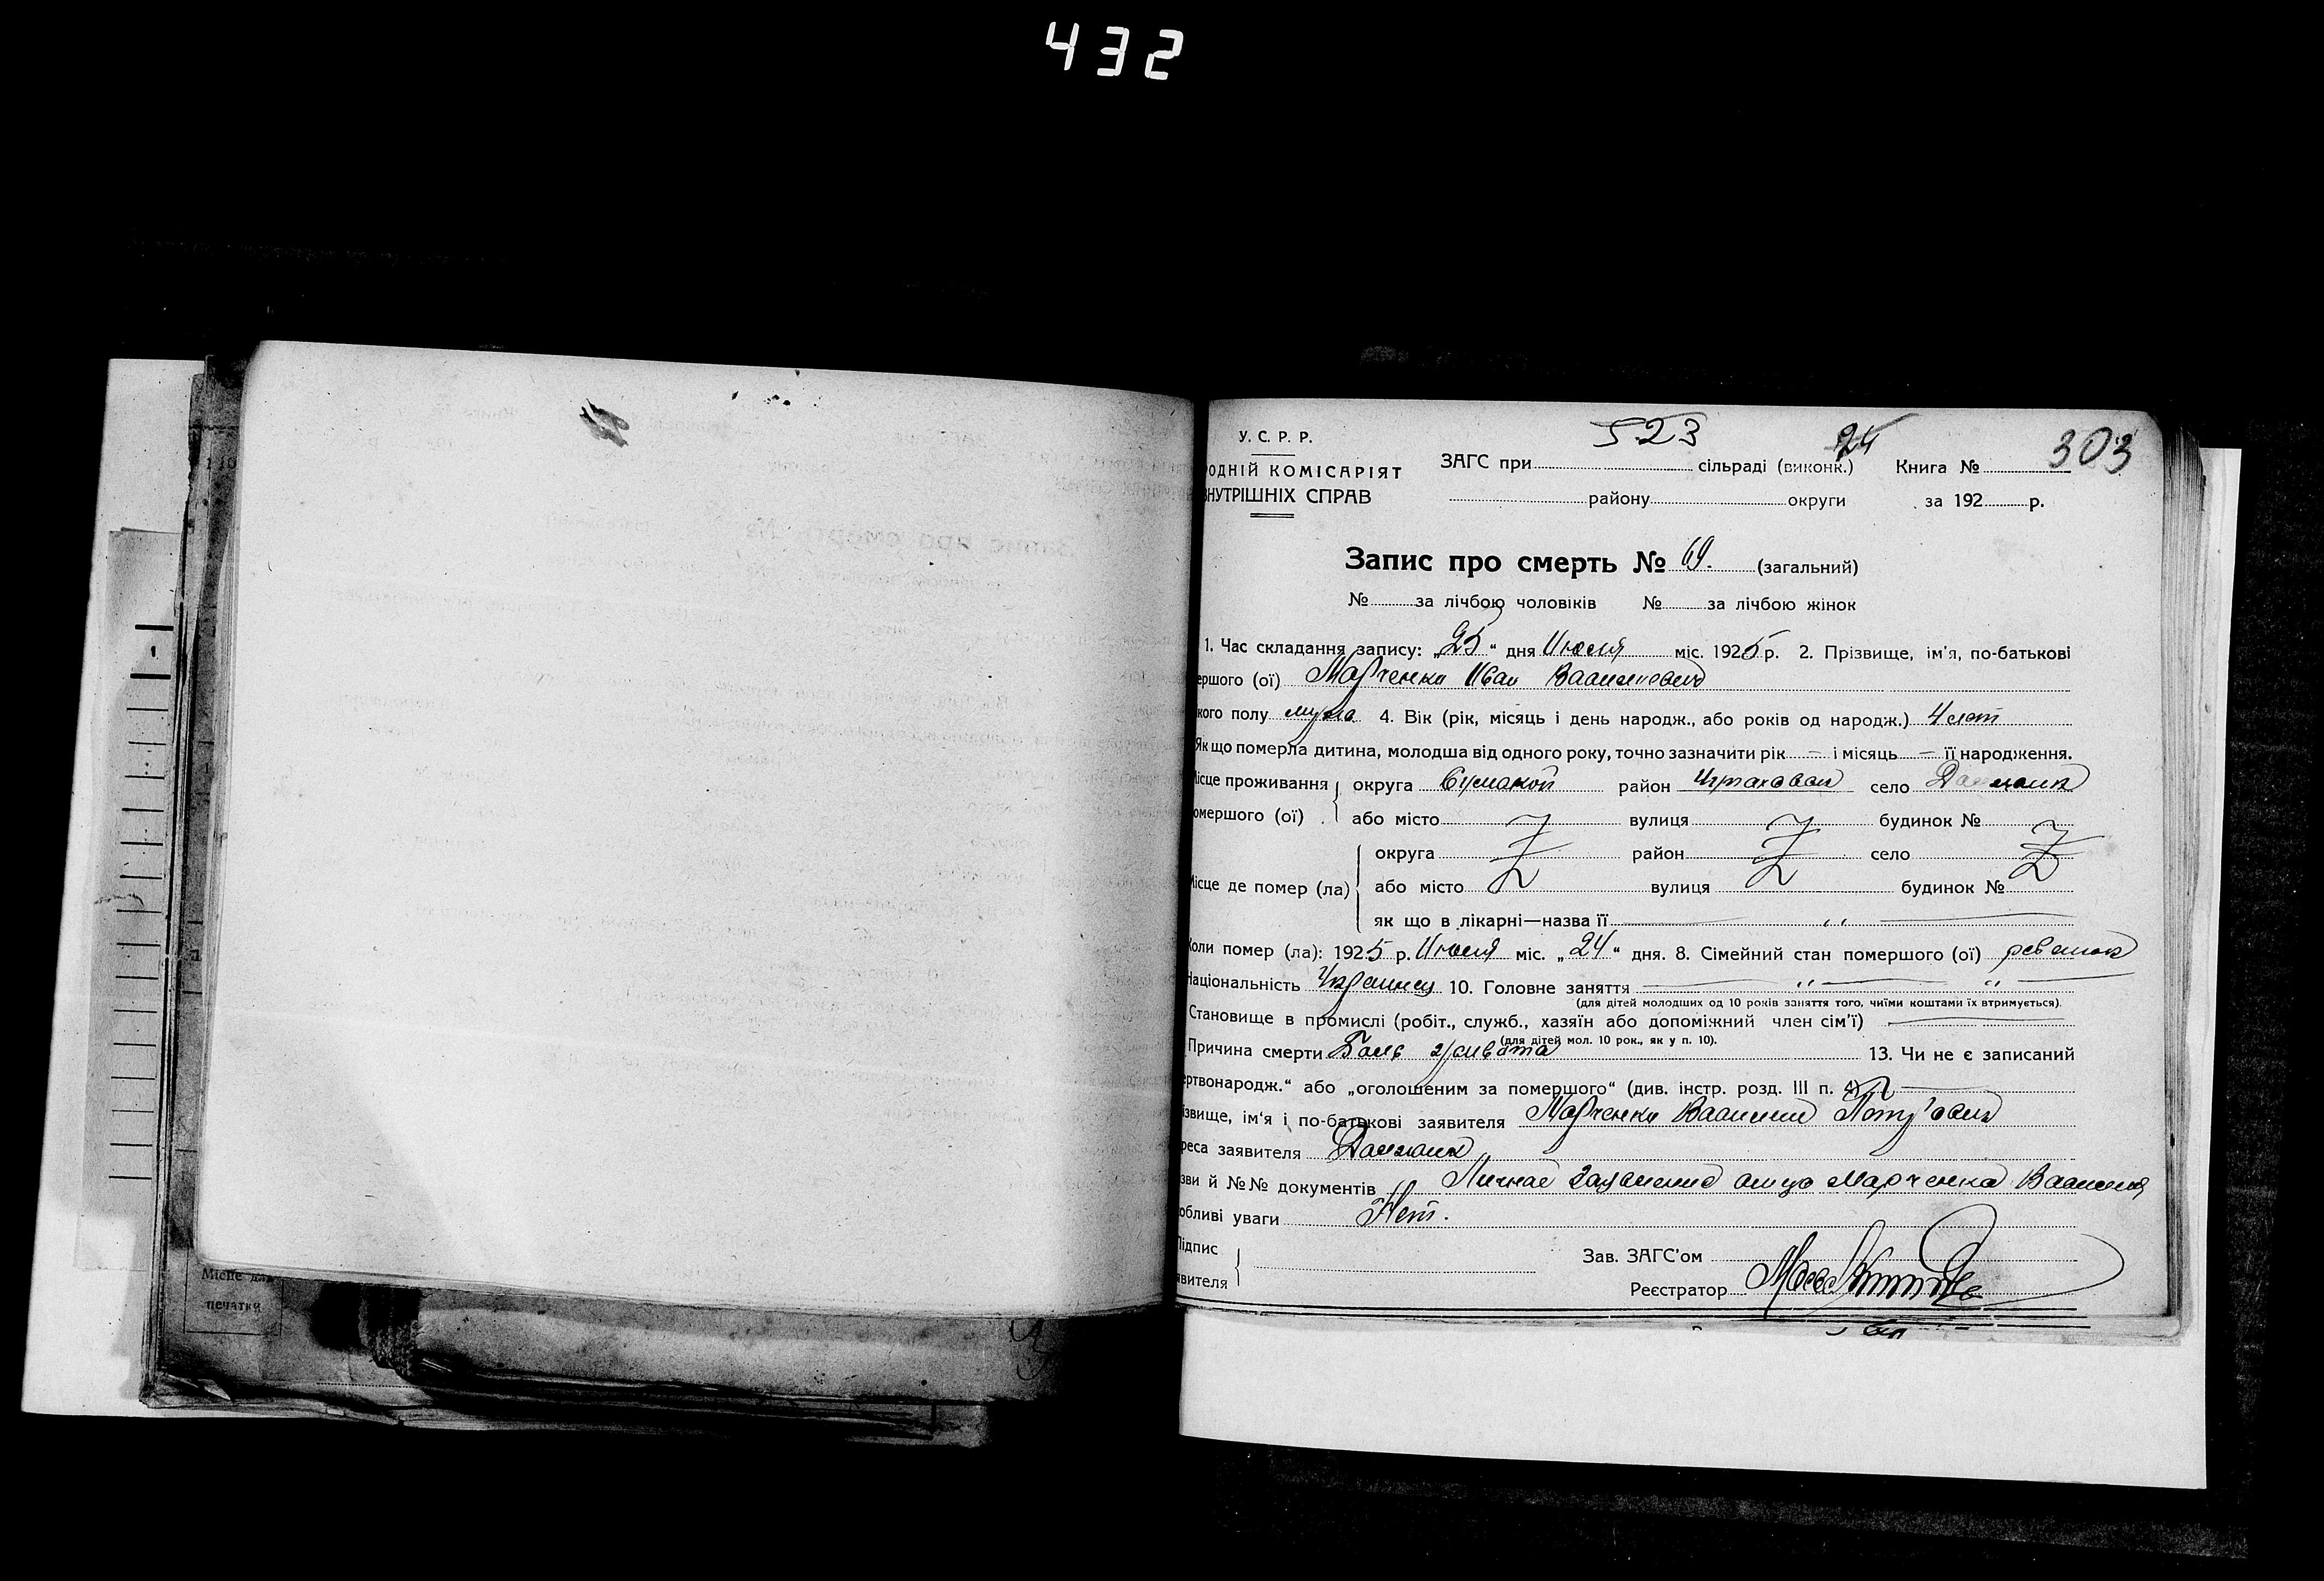 432
523 24 303
У. С. Р. Р.
ОДНІЙ КОМІСАРІЯТ ЗАГС при сільраді (виконк.) Книга №
НУТРІШНІХ СПРАВ району округи за 192 р.
Запис про смерть № 69. (загальний)
№ за лічбою чоловіків № за лічбою жінок
1. Час складання запису: „25“ дня Июля міс. 1925 р. 2. Прізвище, ім'я, по-батькові
ершого (ої) Марченко Иван
кого полу мужс 4. Вік (рік, місяць і день народж., або років од народж.) 4 лет
Як що померла дитина, молодша від одного року, точно зазначити рік — і місяць — її народження.
ісце проживання округа район село
омершого (ої) або місто вулиця будинок №
округа район село
ісце де помер (ла) або місто вулиця будинок №
як що в лікарні—назва її „
оли помер (ла): 1925 р. Июля міс. „24“ дня. 8. Сімейний стан помершого (ої)
аціональність Украинец 10. Головне заняття „ „
(для дітей молодших од 10 років заняття того, чиїми коштами їх втримується).
Становище в промислі (робіт., служб., хазяїн або допоміжний член сім'ї)
(для дітей мол. 10 рок., як у п. 10).
Причина смерти Боль живота 13. Чи не є записаний
ертвонародж.“ або „оголошеним за помершого“ (див. інстр. розд. III п. 4)
ізвище, ім'я і по-батькові заявителя Марченко
реса заявителя
зви й №№ документів Личное заявление отца Марченка
обливі уваги Нет.
Підпис Зав. ЗАГС'ом
явителя Реєстратор
Місце для
печатки